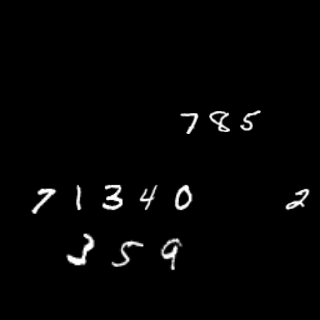 785
71340 2
359